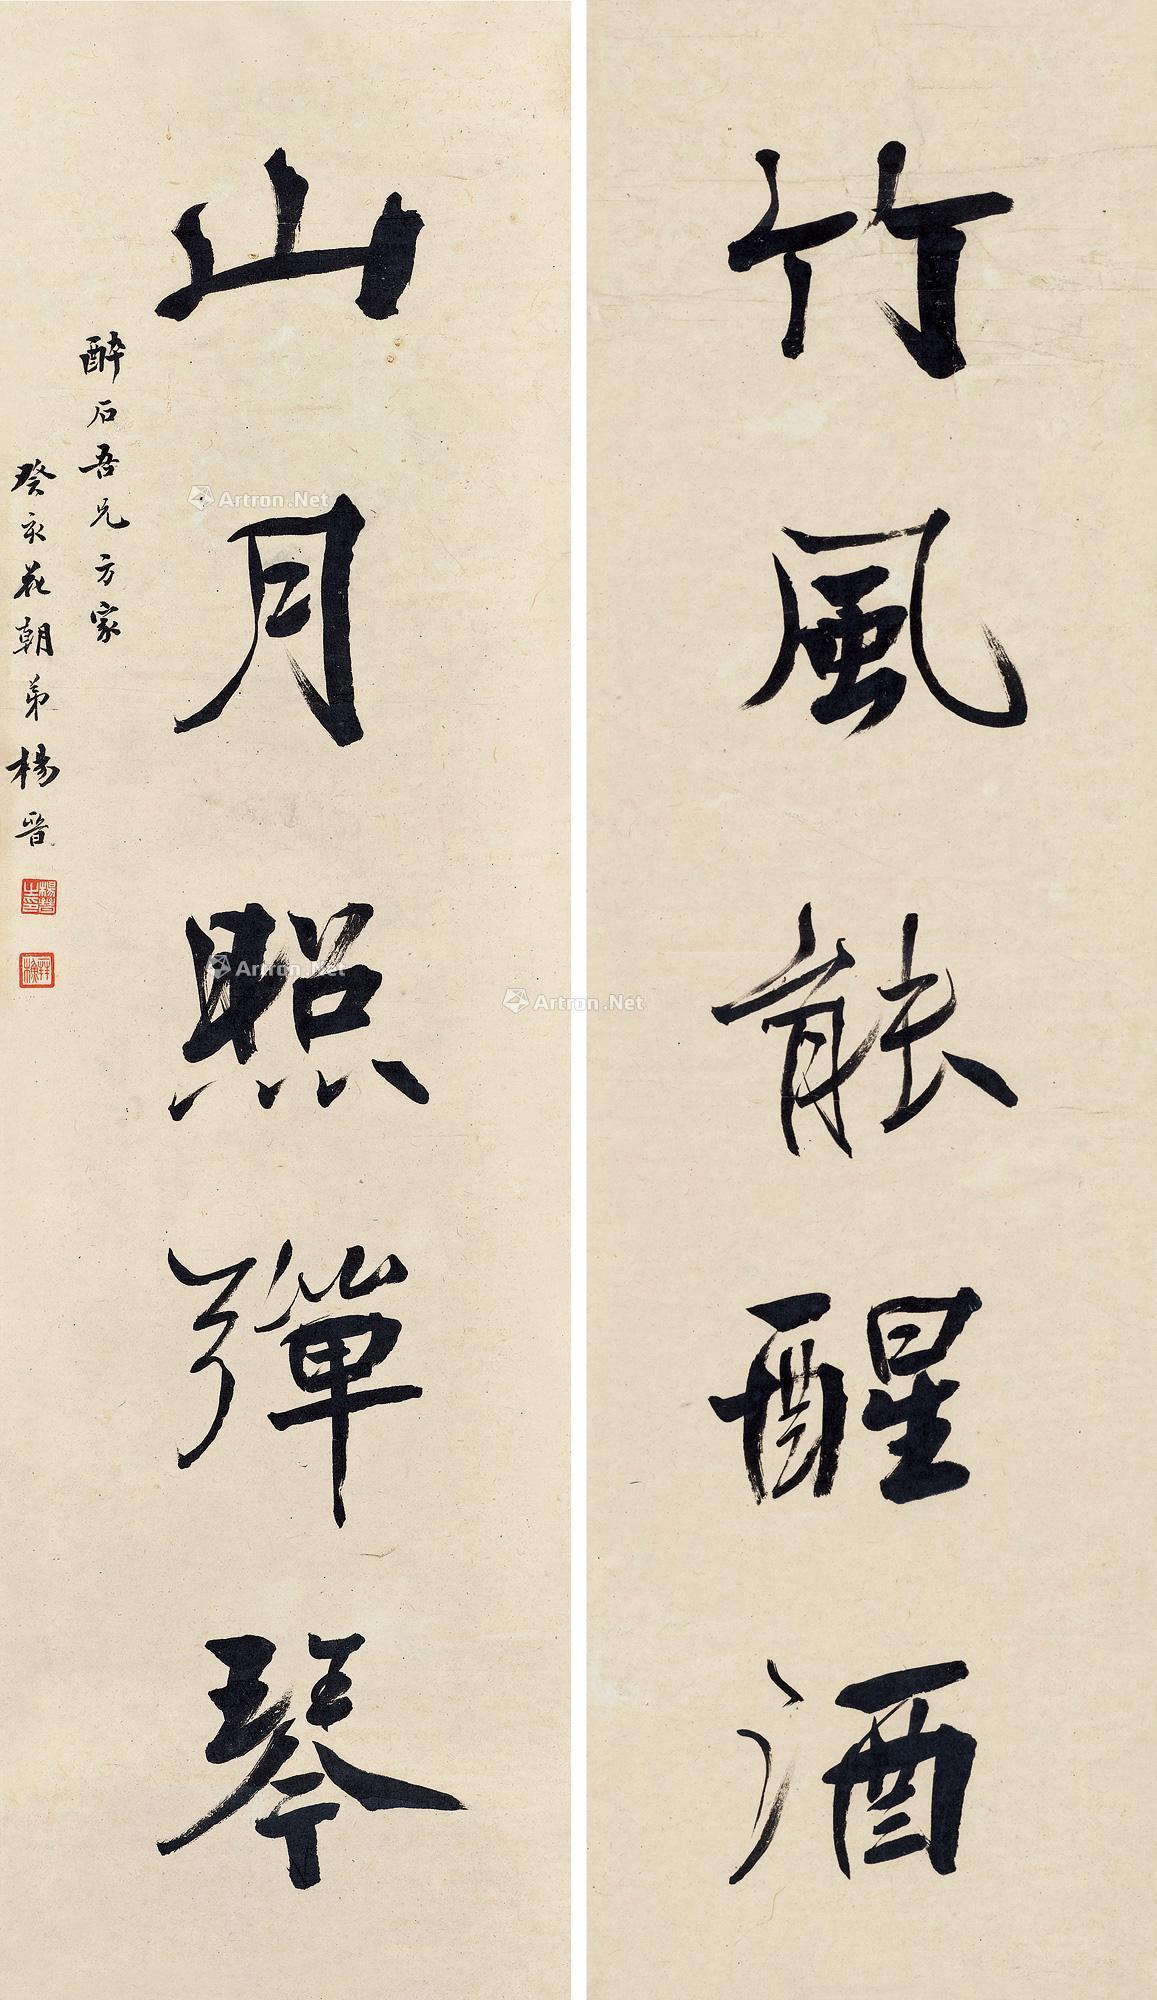 竹風能醒酒
山月照彈琴
醉石吾兄方家
癸亥花朝弟楊晉
Artron.Net
Artron.Net
Artron.Net